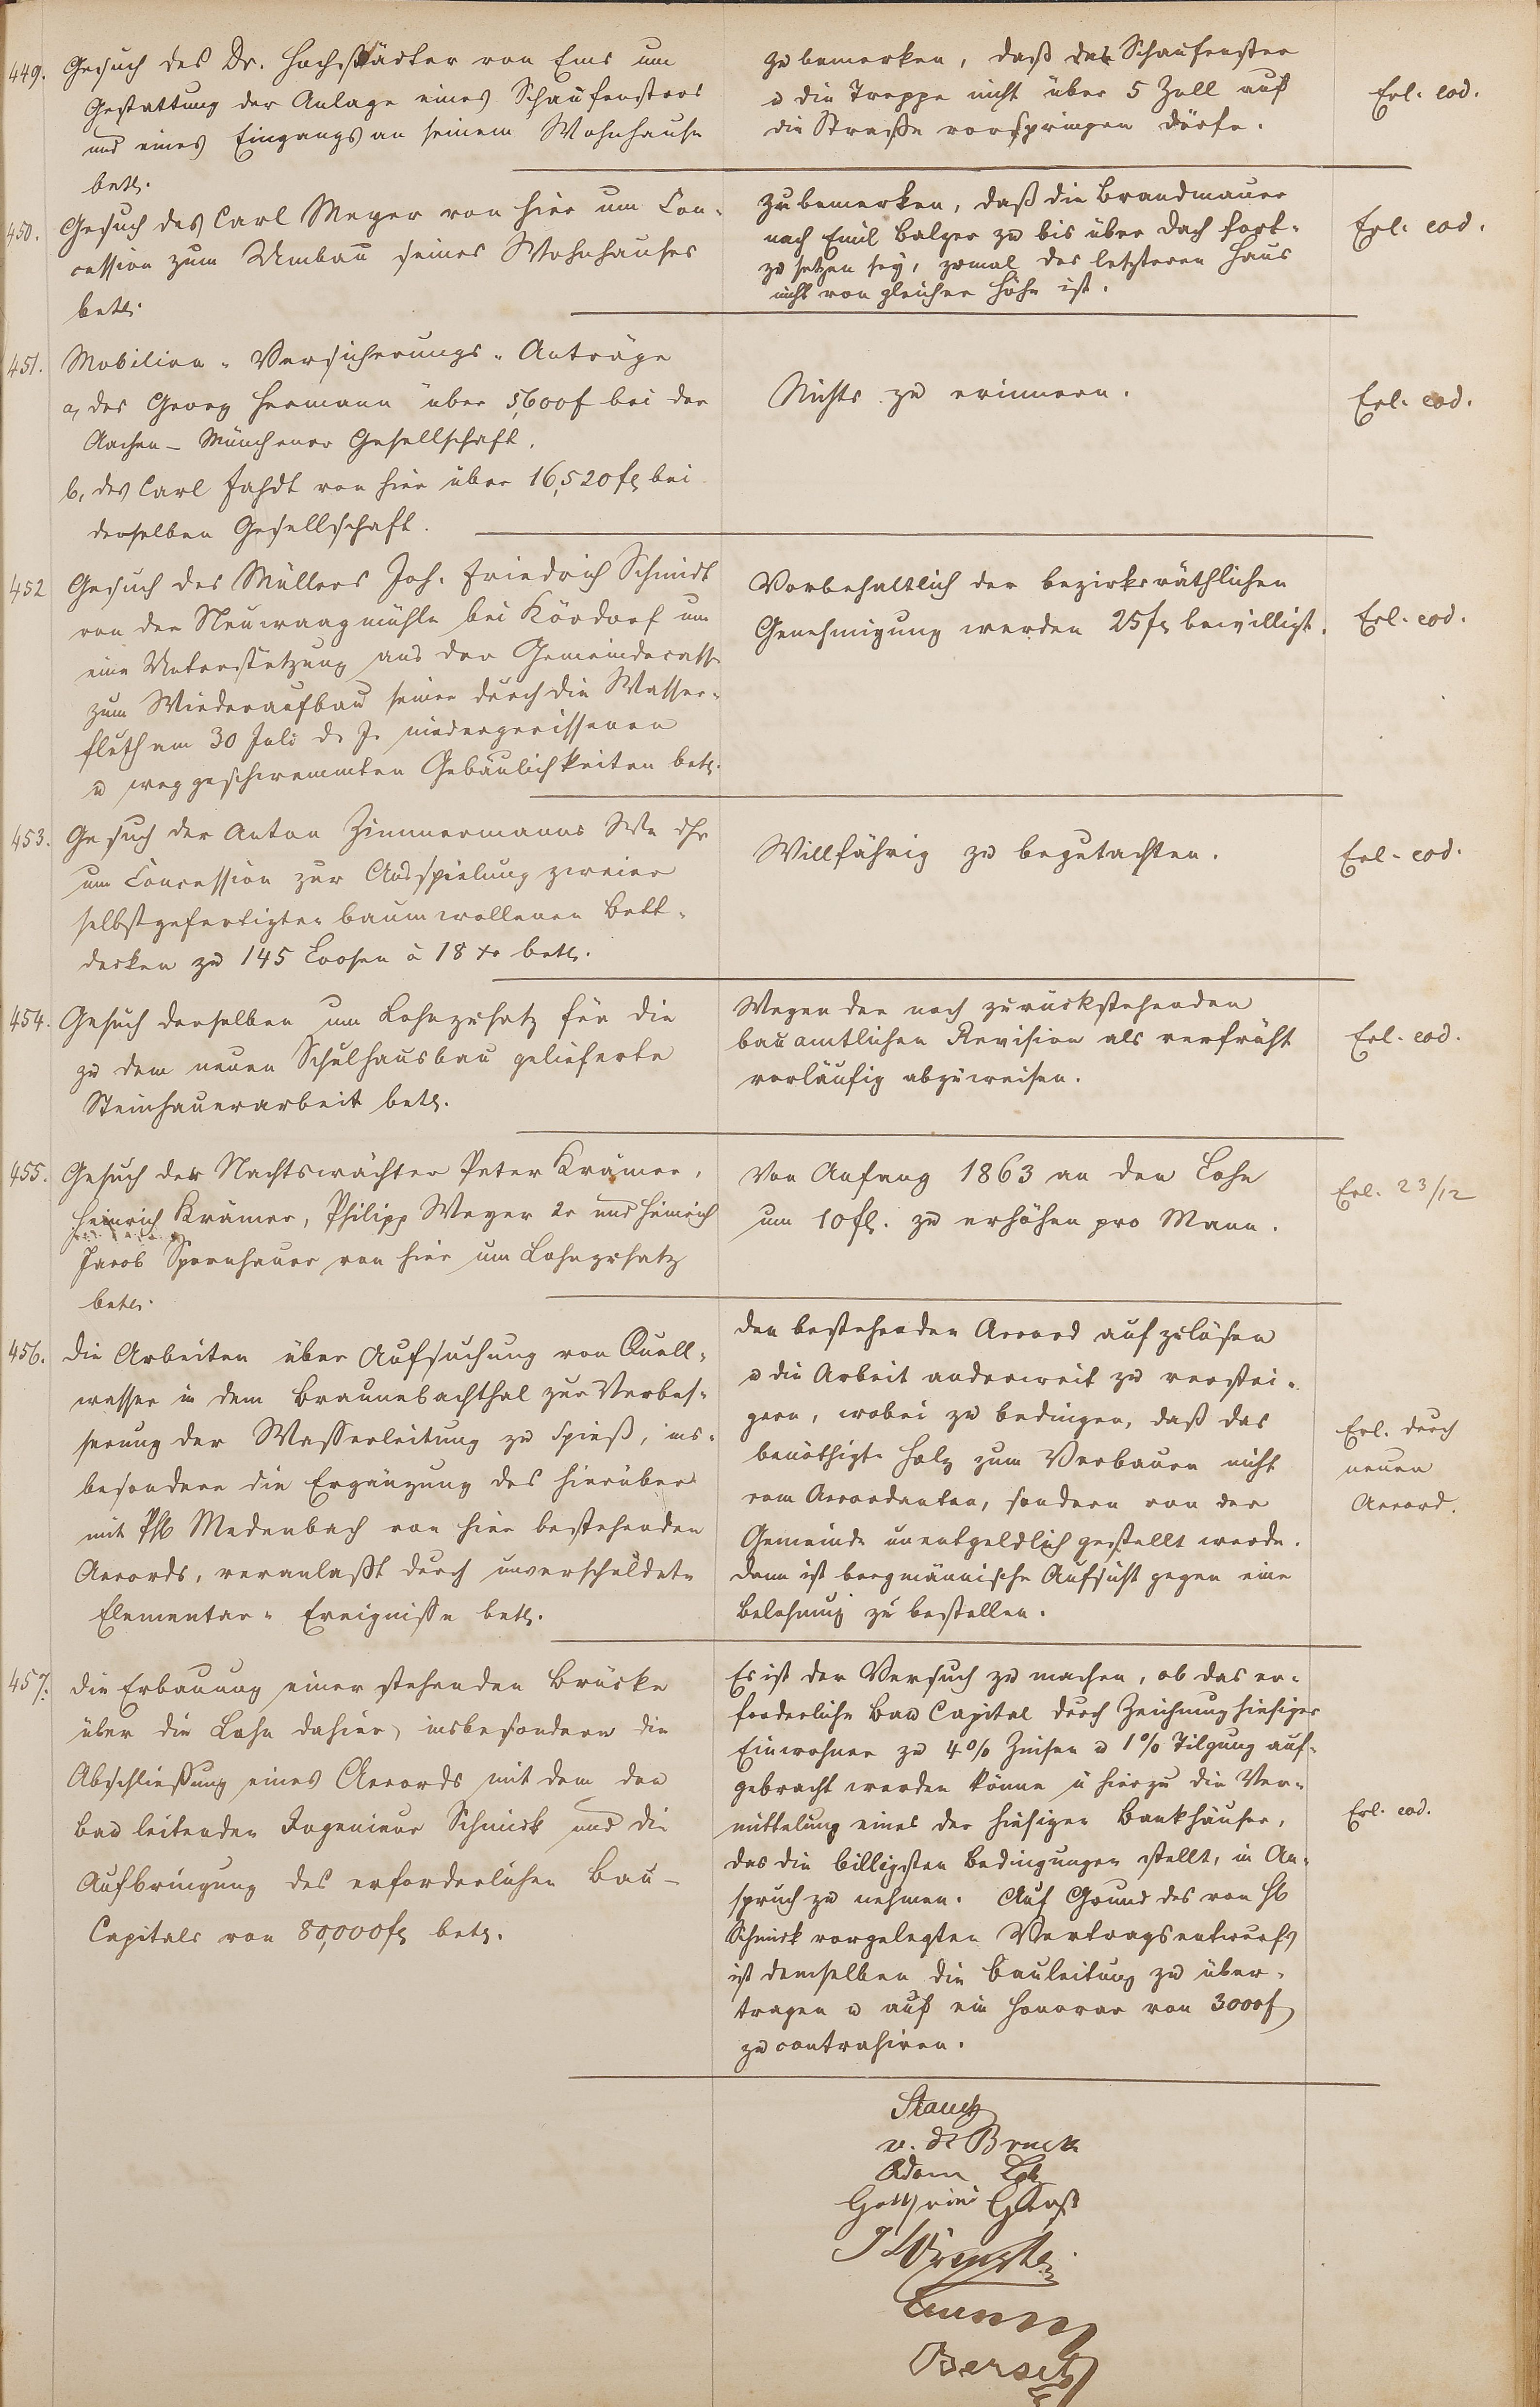 449. Gesuch des Dr. Hochstädter von Ems um
Gestattung der Anlage eines Schaufensters
und eines Eingangs an seinem Wohnhause
betr.
zu bemerken, daß das Schaufenster
u die Treppe nicht über 5 Zoll auf
die Straße vorspringen dürfe.
Erl. eod.
450. Gesuch des Carl Meyer von hier um Con-
cession zum Umbau seines Wohnhauses
betr.
zu bemerken, daß die Brandmauer
nach Emil Balzer zu bis über Dach fort-
zu setzen sey, zumal des letzteren Haus
nicht von gleicher Höhe ist.
Erl. eod.
451. Mobilien-Versicherungs-Anträge
a, des Georg Hermann über 5,600f bei der
Aachen-Münchener Gesellschaft.
b, des Carl Fahdt von hier über 16,520fl bei
derselben Gesellschaft.
Nichts zu erinnern.
Erl. eod.
452 Gesuch des Müllers Joh. Friedrich Schmidt
von der Neuwaagmühle bei Kördorf um
eine Unterstützung aus der Gemeindecasse
zum Wiederaufbau seiner durch die Wasser-
fluth am 30 Juli d. J. niedergerissenen
u weggeschwemmten Gebäulichkeiten betr.
Vorbehaltlich der bezirksräthlichen
Genehmigung werden 25fl bewilligt.
Erl. eod.
453. Gesuch der Anton Zimmermanns We dhr
um Concession zur Ausspielung zweier
selbstgefertigter baumwollenen Bett-
decken zu 145 Loosen à 18 xr betr.
Willfährig zu begutachten.
Erl. eod.
454. Gesuch derselben um Lohnzusatz für die
zu dem neuen Schulhausbau gelieferte
Steinhauerarbeit betr.
Wegen der noch zurückstehenden
bauamtlichen Revision als verfrüht
vorläufig abzuweisen.
Erl. eod.
455. Gesuch der Nachtswächter Peter Krämer,
Heinrich Krämer, Philipp Meyer 2r und Heinrich
Jacob Spornhauer von hier um Lohnzusatz
betr.
Von Anfang 1863 an den Lohn
um 10fl. zu erhöhen pro Mann.
Erl. 23/12
456. die Arbeiten über Aufsuchung von Quell-
wasser in dem Braunebachthal zur Verbes-
serung der Wasserleitung zu Spieß, ins-
besondere die Ergänzung des hierüber
mit Ph Medenbach von hier bestehenden
Accords, veranlaßt durch unverschuldete
Elementar-Ereignisse betr.
den bestehenden Accord aufzulösen
u die Arbeit anderweit zu verstei-
gern, wobei zu bedingen, daß das
benöthigte Holz zum Verbauen nicht
vom Accordanten, sondern von der
Gemeinde unentgeldlich gestellt werde.
Dann ist bergmännische Aufsicht gegen eine
Belohnung zu bestellen.
Erl. durch
neuen
Accord.
457. die Erbauung einer stehenden Brücke
über die Lahn dahier, insbesondere die
Abschließung eines Accords mit dem den
Bau leitenden Ingenieur Schmick und die
Aufbringung des erforderlichen Bau-
Capitals von 80,000fl betr.
Es ist der Versuch zu machen, ob das er-
forderliche Bau Capital durch Zeichnung hiesiger
Einwohner zu 4% Zinsen u 1% Tilgung auf-
gebracht werden könne u hierzu die Ver-
mittelung eines der hiesigen Bankhäuser,
das die billigsten Bedingungen stellt, in An-
spruch zu nehmen. Auf Grund des von H
Schmick vorgelegten Vertragsentwurfs
ist demselben die Bauleitung zu über-
tragen u auf ein Honorar von 3000f
zu contrahiren.
Erl. eod.
v. d. Bruck
Adam
Gottfried